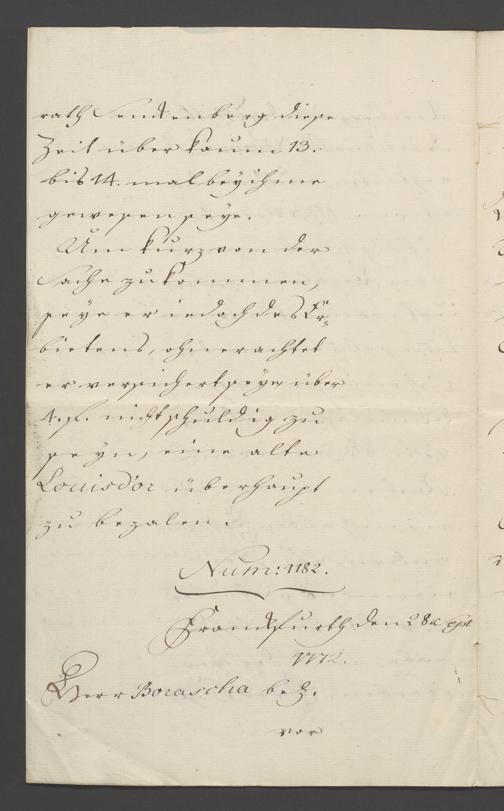 rath Senckenberg diese
Zeit über kaum 13.
bis 14. mal beÿ ihme
gewesen seÿe.
Um kurz von der
Sache zu kommen,
seÿe er iedoch des Er-
bietens, ohnerachtet
er versichert seÿe über
4. f. nicht schuldig zu
seÿn, eine alte
Louisd'or überhaupt
zu bezalen.
Num: 1182.
Franckfurth den 28
1772.
Herr Borascha
vor